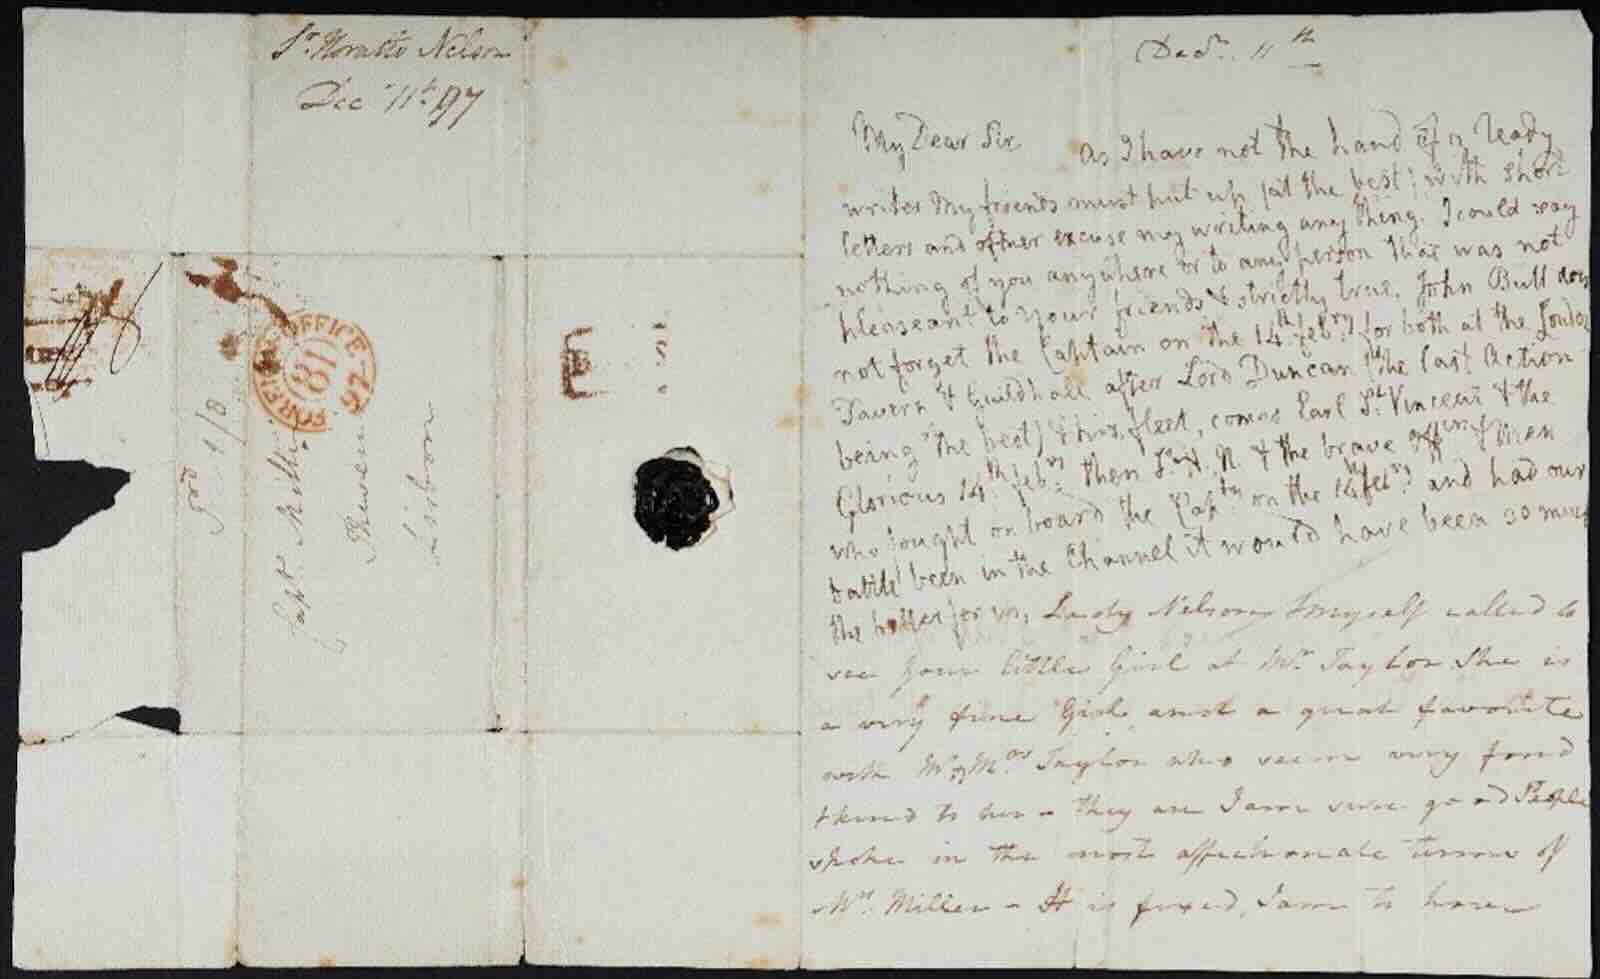 Sr. Horatio Nelson
Decr 11th 97
FOREIGN OFFICE
81
97
Prd 1/8
Capt. Miller
Theseus
Lisbon
Decr. 11th
My Dear Sir as I have not the hand of a ready
writer My friends must put up (at the best) with short
letters and often excuse my writing any thing. I could say
nothing of you anywhere or to any person that was not
pleaseant to your friends & strictly true. John Bull does
not forget the Captain on the 14th febry for both at the London
Tavern & Guildhall after Lord Duncan (the last Action
being the best) & his fleet, comes Earl St. Vincent & the
Glorious 14th febry then Sr. H. N. & the brave Offrs & Men
who fought on board the Captn on the 14 febry and had our
battle been in the Channel it would have been so much
the better for us, Lady Nelson & myself called to
see your little Girl at Mrs Taylor She is
a very fine Girl, and a great favorite
with Mr & Mrs Taylor who seem very fond
& kind to her - they are I am sure good People
spoke in the most affectionate terms of
Mrs. Miller - It is fixed, I am to have